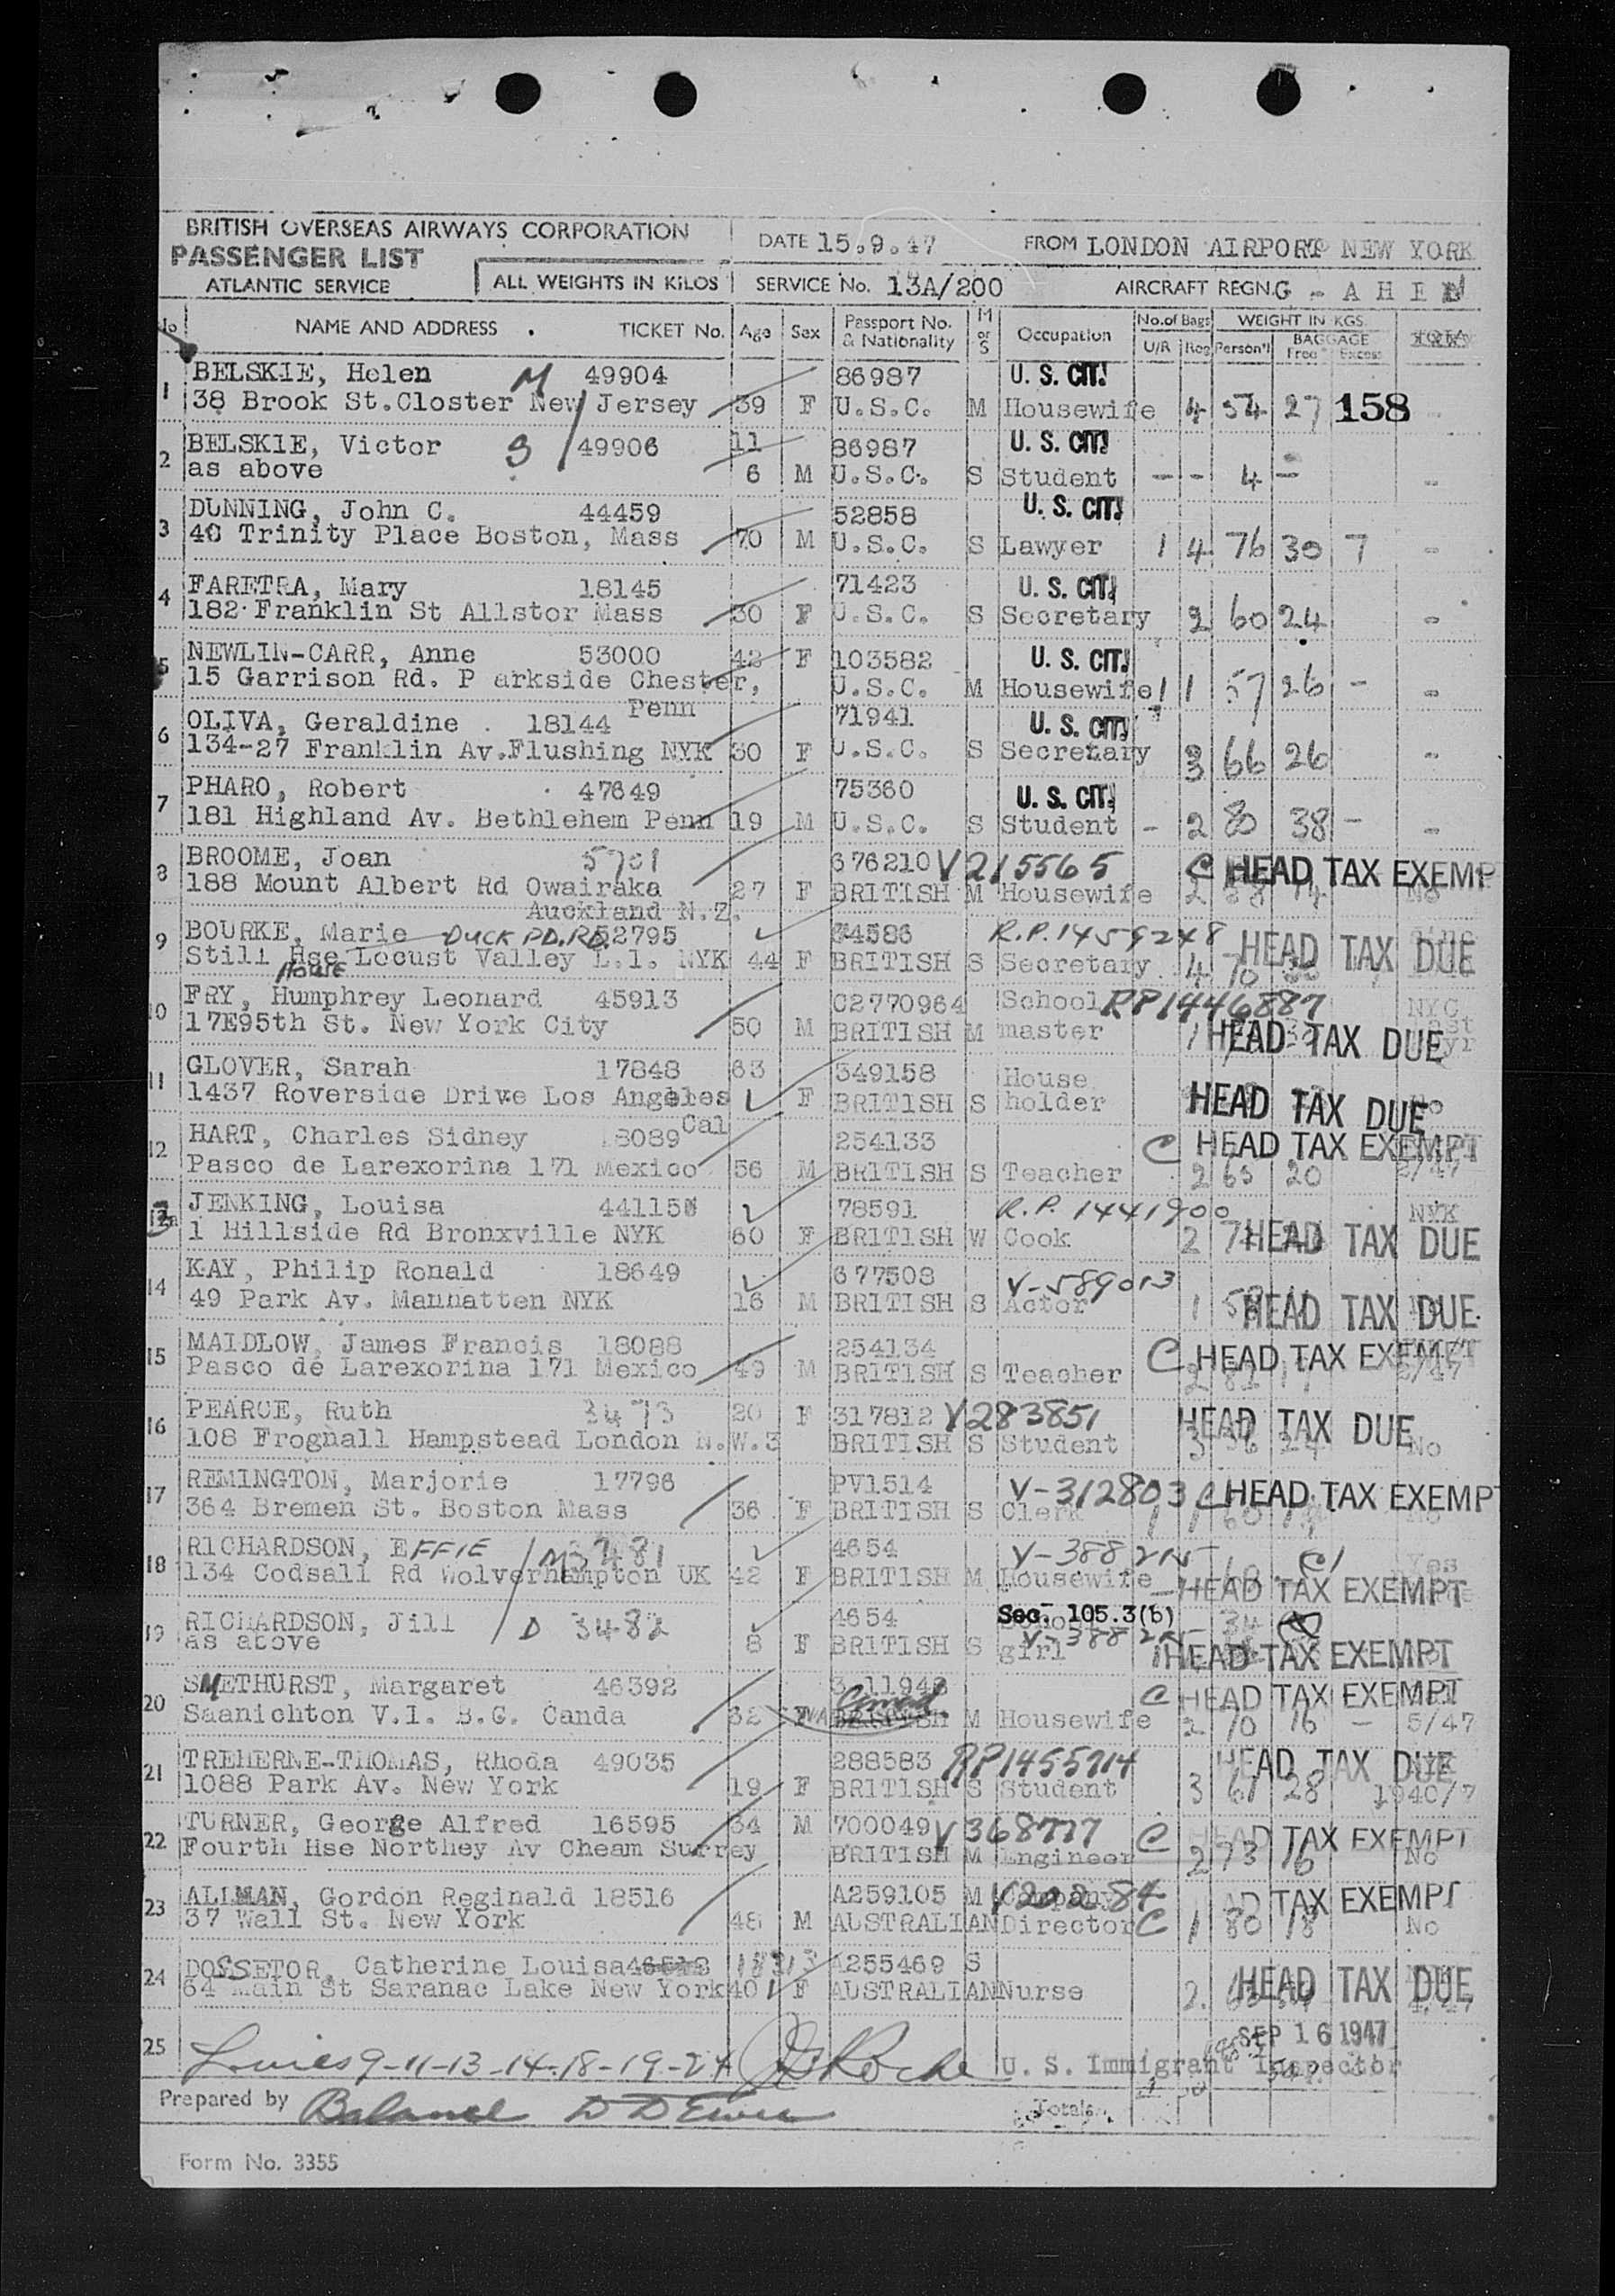 BRITISH OVERSEAS AIRWAYS CORPORATION
PASSENGER LIST
ATLANTIC SERVICE
ALL WEIGHTS IN KILOS
DATE 15.9.47
FROM LONDON AIRPORT NEW YORK
SERVICE No. 13A/200
AIRCRAFT REGN. G - A H E
No NAME AND ADDRESS TICKET No. Age Sex Passport No. & Nationality M or S Occupation No. of Bags U/R Reg WEIGHT IN KGS. Person'l BAGGAGE Free Excess
1 BELSKIE, Helen M 49904 86987 U. S. CIT.
38 Brook St.Closter New Jersey 39 F U.S.C. M Housewife 4 54 27 158
2 BELSKIE, Victor S 49906 11 86987 U. S. CIT.
as above 6 M U.S.C. S Student - - 4 -
3 DUNNING, John C. 44459 52858 U. S. CIT.
40 Trinity Place Boston, Mass 70 M U.S.C. S Lawyer 1 4 76 30 7 -
4 FARETRA, Mary 18145 71423 U. S. CIT.
182 Franklin St Allstor Mass 30 F U.S.C. S Secretary 2 60 24 -
5 NEWLIN-CARR, Anne 53000 42 F 103582 U. S. CIT.
15 Garrison Rd. P arkside Chester, U.S.C. M Housewife 1 1 57 26 - -
Penn
6 OLIVA, Geraldine 18144 71941 U. S. CIT.
134-27 Franklin Av.Flushing NYK 30 F U.S.C. S Secretary 3 66 26 -
7 PHARO, Robert 47649 75360 U. S. CIT.
181 Highland Av. Bethlehem Penn 19 M U.S.C. S Student - 2 80 38 - -
8 BROOME, Joan 5701 676210 V215565 C HEAD TAX EXEMP
188 Mount Albert Rd Owairaka 27 F BRITISH M Housewife 2 No
Auckland N.Z.
9 BOURKE, Marie DUCK PD.RD. 52795 74586 R.P.1459248 HEAD TAX DUE
Still Hse Locust Valley L.I. NYK 44 F BRITISH S Secretary 4 70
House
10 FRY, Humphrey Leonard 45913 C2770964 School RP1446887 NYC
17E95th St. New York City 50 M BRITISH M master 1 HEAD TAX DUE
11 GLOVER, Sarah 17848 63 349158 House
1437 Roverside Drive Los Angeles F BRITISH S holder HEAD TAX DUE No
Cal
12 HART, Charles Sidney 18089 254133 C HEAD TAX EXEMPT
Pasco de Larexorina 171 Mexico 56 M BRITISH S Teacher 2 65 20 2/47
JENKING, Louisa 44115 78591 R.P. 1441900 NYK
1 Hillside Rd Bronxville NYK 60 F BRITISH W Cook 2 HEAD TAX DUE
14 KAY, Philip Ronald 18649 677508 V-589013
49 Park Av. Mannatten NYK 16 M BRITISH S Actor 1 58 HEAD TAX DUE
15 MAIDLOW, James Francis 18088 254134 C HEAD TAX EXEMPT
Pasco de Larexorina 171 Mexico 49 M BRITISH S Teacher 2 2/47
16 PEARCE, Ruth 3473 20 F 317812 V283851 HEAD TAX DUE
108 Frognall Hampstead London N.W.3 BRITISH S Student 3 No
17 REMINGTON, Marjorie 17796 PV1514 V-312803 C HEAD TAX EXEMPT
364 Bremen St. Boston Mass 36 F BRITISH S Clerk 1 1 60
18 RICHARDSON, EFFIE M 3481 4654 V-388215 Yes
134 Codsall Rd Wolverhampton UK 42 F BRITISH M Housewife HEAD TAX EXEMPT
19 RICHARDSON, Jill D 3482 4654 Sec. 105.3(b) 34
as above 8 F BRITISH S girl V-388215 HEAD TAX EXEMPT
20 SMETHURST, Margaret 46392 C HEAD TAX EXEMPT
Saanichton V.I. B.C. Canda 32 F BRITISH M Housewife 2 70 16 - 5/47
21 TREHERNE-THOMAS, Rhoda 49035 288583 RP1455714 HEAD TAX DUE
1088 Park Av. New York 19 F BRITISH S Student 3 61 28 1940/7
22 TURNER, George Alfred 16595 34 M 700049 V368777 C HEAD TAX EXEMPT
Fourth Hse Northey Av Cheam Surrey BRITISH M Engineer 2 73 16 No
23 ALLMAN, Gordon Reginald 18516 A259105 M Company HEAD TAX EXEMPT
37 Wall St. New York 48 M AUSTRALIAN Director C 1 80 18 No
24 DOSSETOR, Catherine Louisa 46518 A255469 S
64 Main St Saranac Lake New York 40 F AUSTRALIAN Nurse 2. HEAD TAX DUE
SEP 16 1947
25 9-11-13-14-18-19-24 Roche U. S. Immigrant Inspector
Prepared by Balance Totals
Form No. 3355